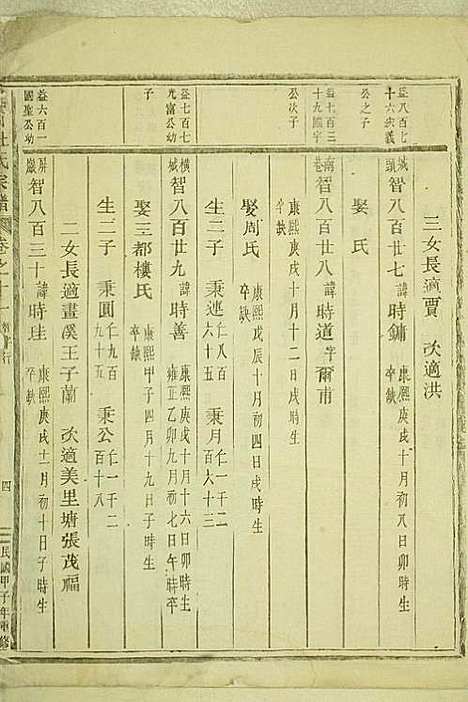 三女長適賈 次適洪
益八百七十六宗義公之子
城頭 智八百廿七 諱時鏞 康熙庚戌十月初八日卯時生 卒缺
娶 氏
益七百三十九國宇公次子
南巷 智八百廿八 諱時道 字爾甫 康熙庚戌十月十二日戌時生 卒缺
娶周氏 康熙戊辰十月初四日戌時生 卒缺
生二子 秉進 仁九百六十五 秉月 仁一千二百六十三
益七百七光富公幼子
橫城 智八百廿九 諱時善 康熙庚戌十月十六日卯時生 雍正乙卯九月初七日午時卒
娶三都樓氏 康熙甲子四月十九日子時生 卒缺
生二子 秉圓 仁九百九十五 秉公 仁一千二百十八
二女長適畫溪王子蘭 次適美里塘張茂福
益六百一國聖公幼
屏巖 智八百三十 諱時珪 康熙庚戌十一月初十日子時生 卒缺
杜氏宗譜 卷之十一 智行 四 民國甲子年重修